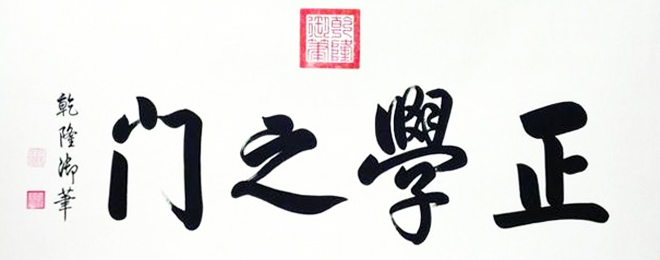 乾隆御筆
正學之门
乾隆御筆